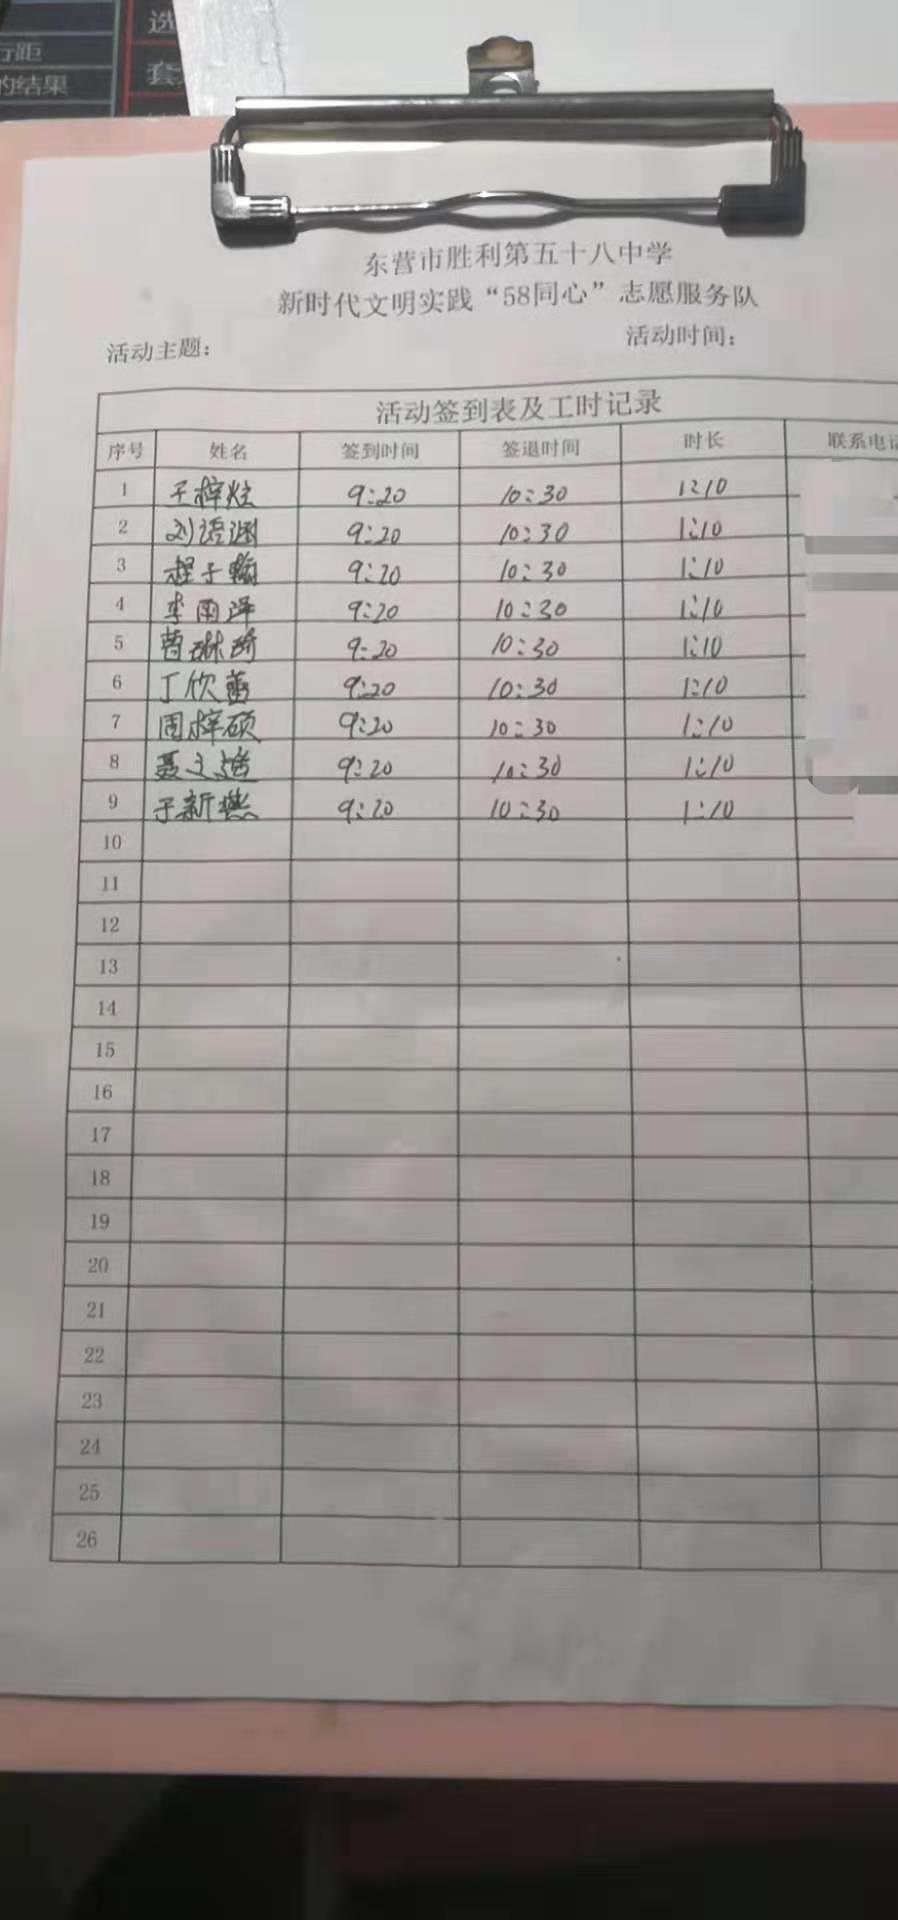 行距
的结果
选
套
东营市胜利第五十八中学
新时代文明实践“58同心”志愿服务队
活动主题： 活动时间：
活动签到表及工时记录
序号 姓名 签到时间 签退时间 时长 联系电话
1 于梓炫 9:20 10:30 1:10
2 刘语涵 9:20 10:30 1:10
3 程子翰 9:20 10:30 1:10
4 李雨泽 9:20 10:30 1:10
5 曹琳琦 9:20 10:30 1:10
6 丁欣 9:20 10:30 1:10
7 周梓硕 9:20 10:30 1:10
8 聂文 9:20 10:30 1:10
9 于新燃 9:20 10:30 1:10
10
11
12
13
14
15
16
17
18
19
20
21
22
23
24
25
26